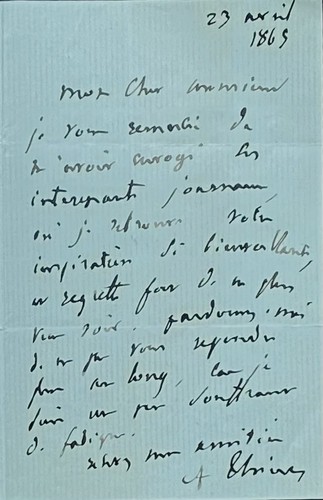 23 avril
1869
mon cher monsieur
je vous remercie de
m'avoir envoyé les
interessants journaux,
où je retrouve votre
inspiration si bienveillante,
et regrette fort de ne plus
vous voir. pardonnez-moi
de ne pas vous repondre
plus au long, car je
suis un peu souffrant
de fatigue.
mon amitié
A Thiers